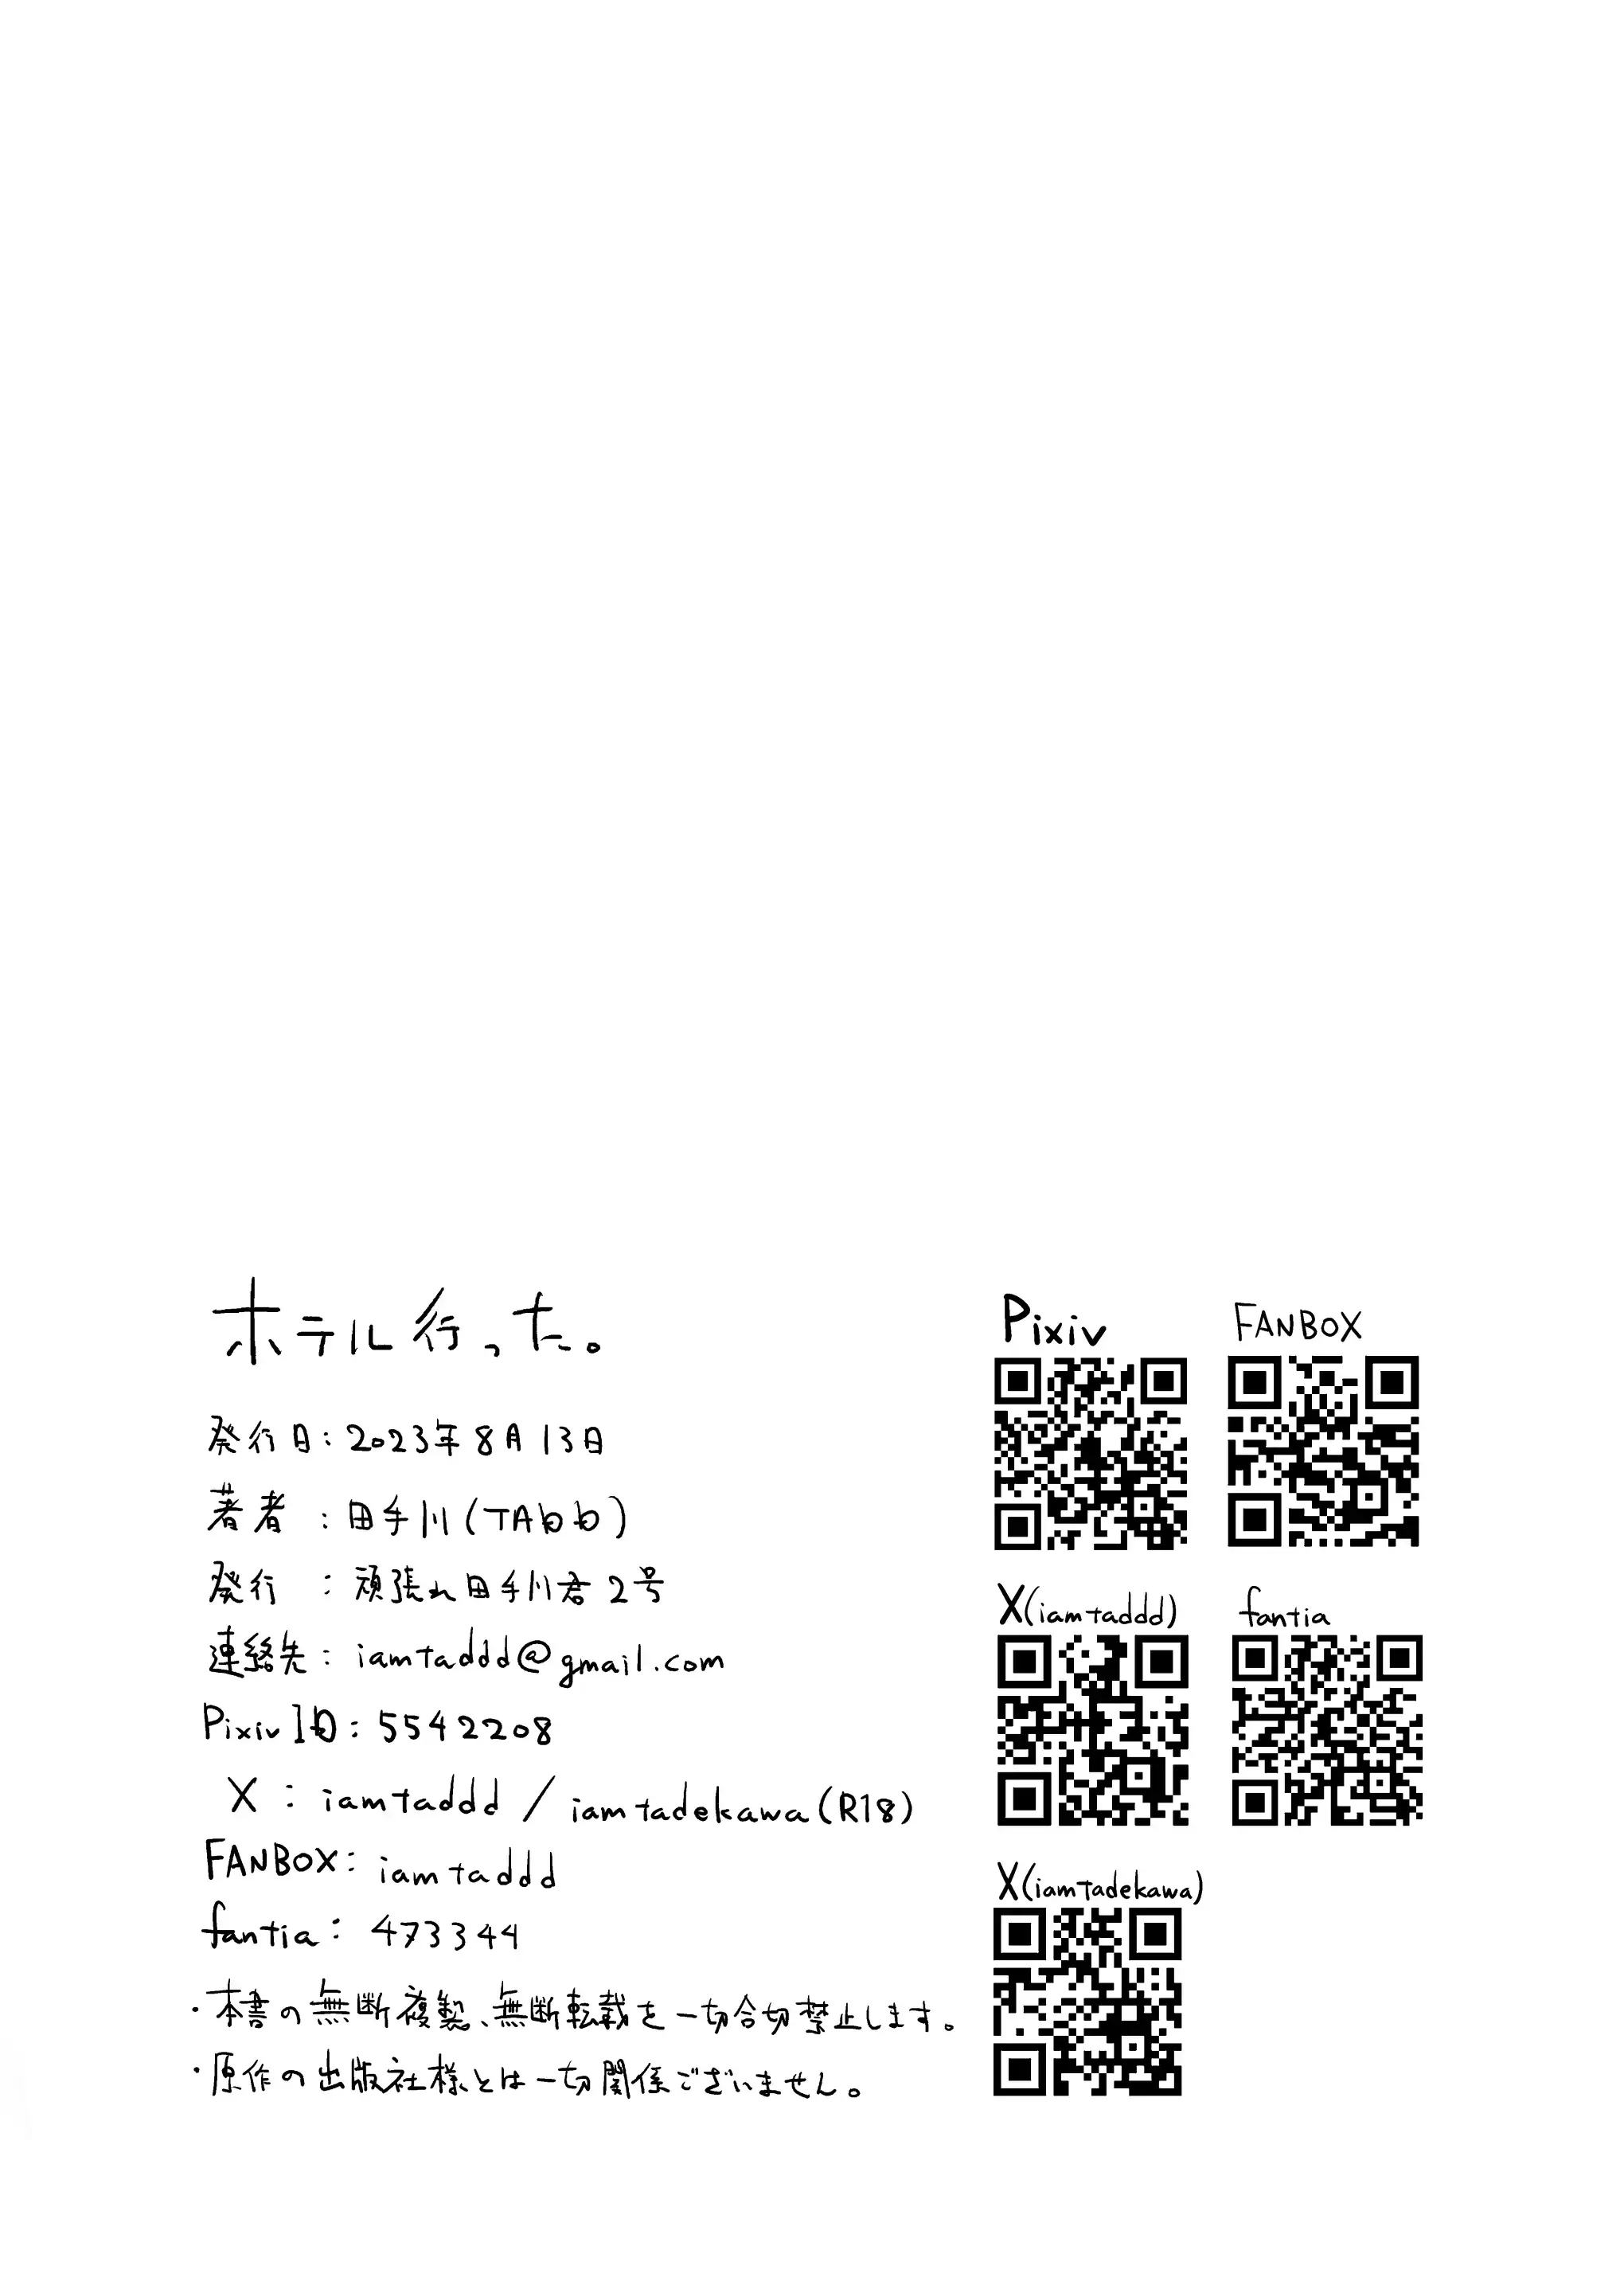 ホテル行った。
発行日：2023年8月13日
著者：田手川（TADD）
発行：頑張れ田手川君2号
連絡先：iamtaddd@gmail.com
Pixiv ID：5542208
X：iamtaddd / iamtadekawa(R18)
FANBOX：iamtaddd
fantia：473344
・本書の無断複製、無断転載を一切合切禁止します。
・原作の出版社様とは一切関係ございません。
Pixiv
FANBOX
X(iamtaddd)
fantia
X(iamtadekawa)